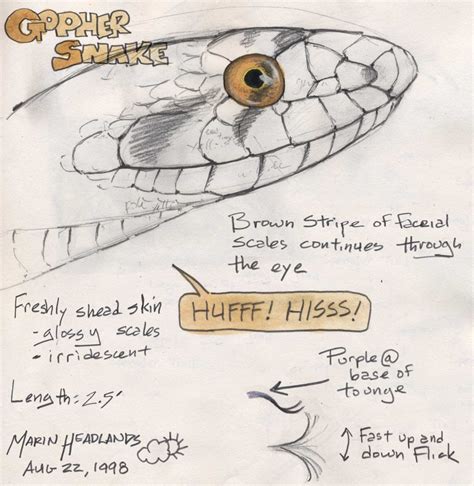 GOPHER
SNAKE
Brown Stripe of facial
scales continues through
the eye
HUFFF! HISSS!
Freshly shead skin
- glossy scales
- irridescent
Purple @
base of
tounge
Length: 2.5'
Fast up and
down Flick
MARIN HEADLANDS
AUG 22, 1998